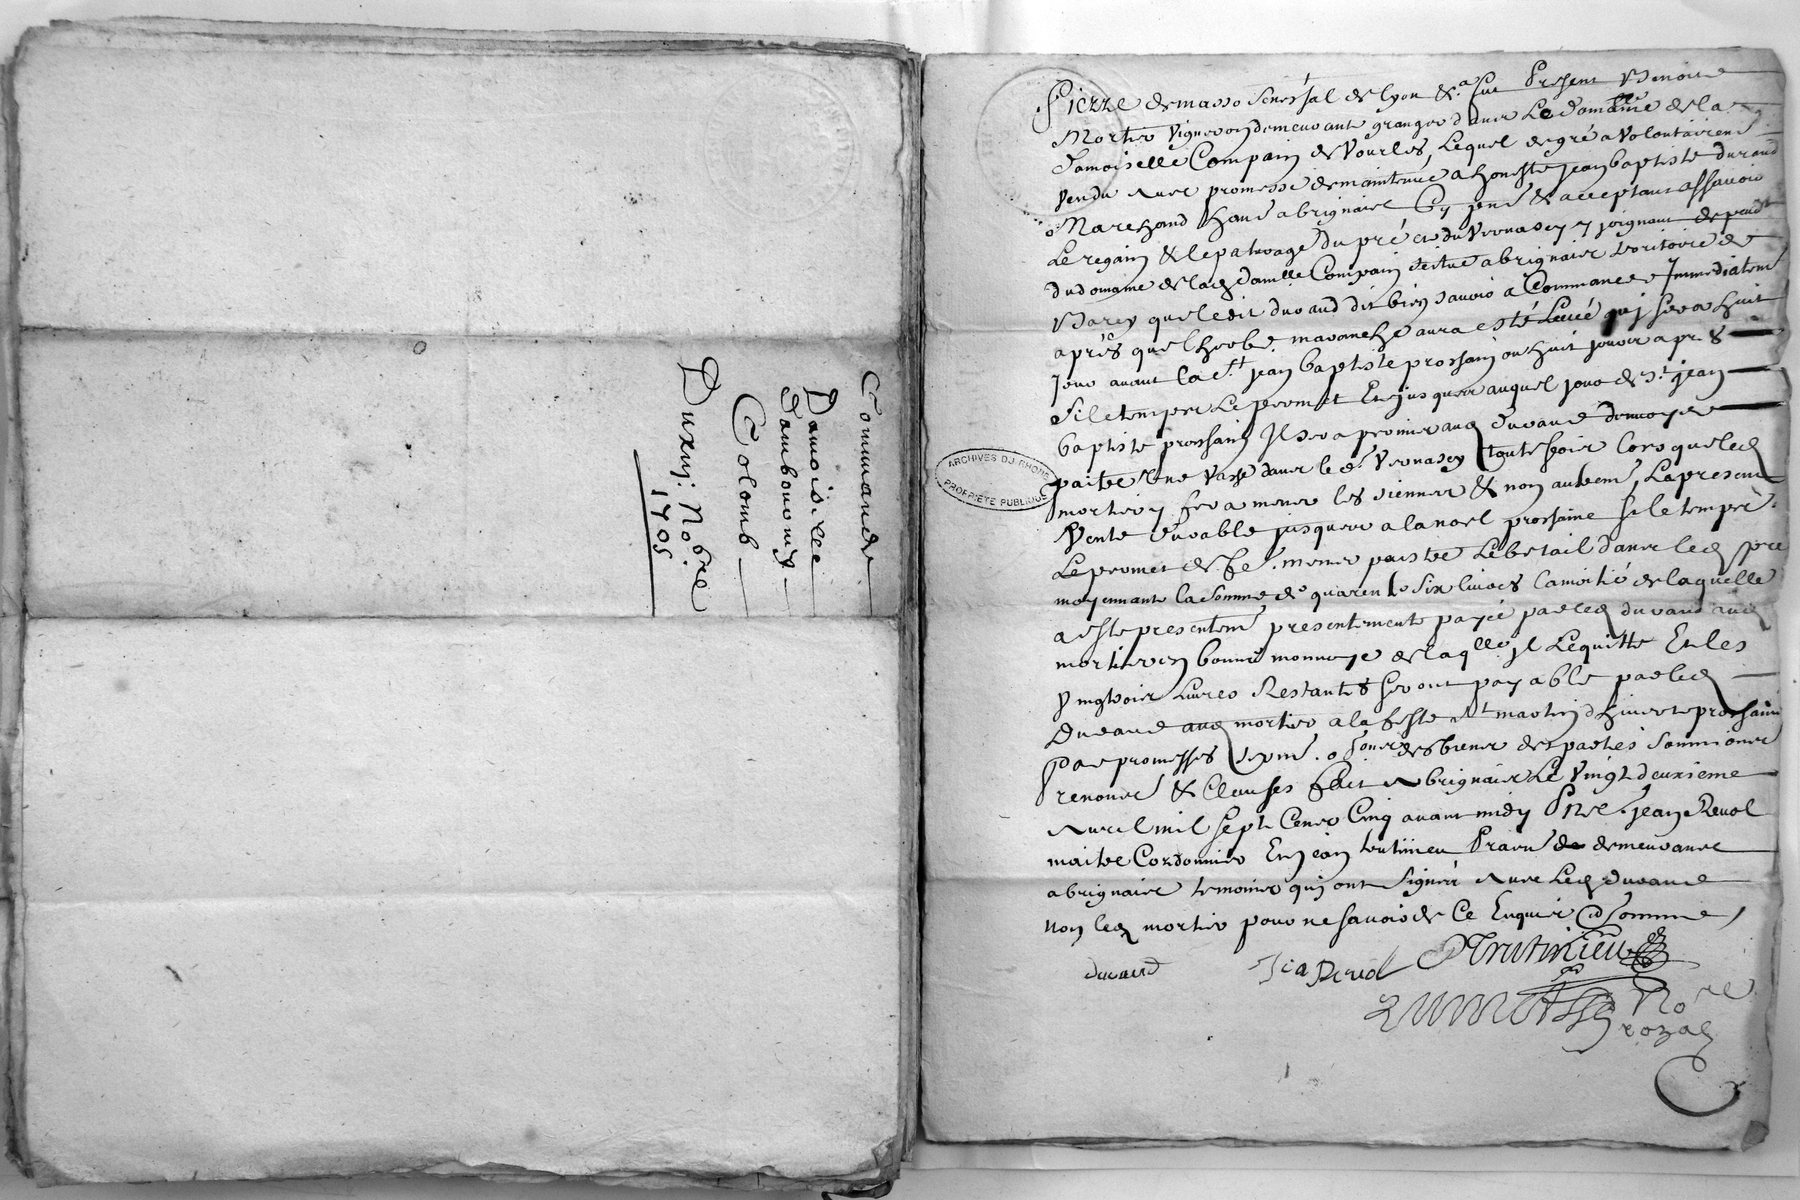 Commande
Damoiselle
Colomb
Du xvj: No.bre
1705
Pierre demasso Seneschal de lyon &.a fut Present Benoist
Mortier vigneron demeurant granger dans Le Domaine de la
Damoiselle Compain de Vourles, Lequel de gré a volontairemt
vendu avec promesse de maintenue a honeste jean baptiste durand
Marchand a brignais Cy &  acceptant assavoir
Le regain & le paturage du pré du Vernasey y joignant
du domaine de lad damlle Compain scitué a brignais teritoire de
Barey que ledit durand dit bien savoir a Commancer Immediatemt
après que lherbe aura esté Levée quj sera huit
jour avant la St jean baptiste prochain ou huit jour apres
sj le temps Le permet Et jusques auquel jour de St jean
baptiste prochain Il sera permis aud durand
paitre Une vache dans le d. Vernasey toutesfois lorsque led
mortier y fera mener les siennes & non autremt, La presente
Vente durable jusques a la noel prochaine sj le temps
Le permet de fe. mener paistre Le betail dans led
moyennant la somme de quarente six livres la moitié de laquelle
a esté presentemt presentement payé par led durand aud
mortier en bonne monnoye de laqlle jl Le quitte Et les
vingt trois Livres Restantes seront payable par led
Durand aud mortier a la feste St martin dhivert prochaine
Par promesses des biens des parties
renoncé & Clauses fait a brignais Le Vingt deuxieme
Avril mil sept Cens Cinq avant midy jean Revol
maitre Cordonnier Et jean demeurant
a brignais temoins quj ont signés avec Led durand
non led mortier pour ne savoir de Ce Enquis et somme,
durand
Jea Revol
No.re
rozal
ARCHIVES DU RHONE
PROPRIÉTÉ PUBLIQUE